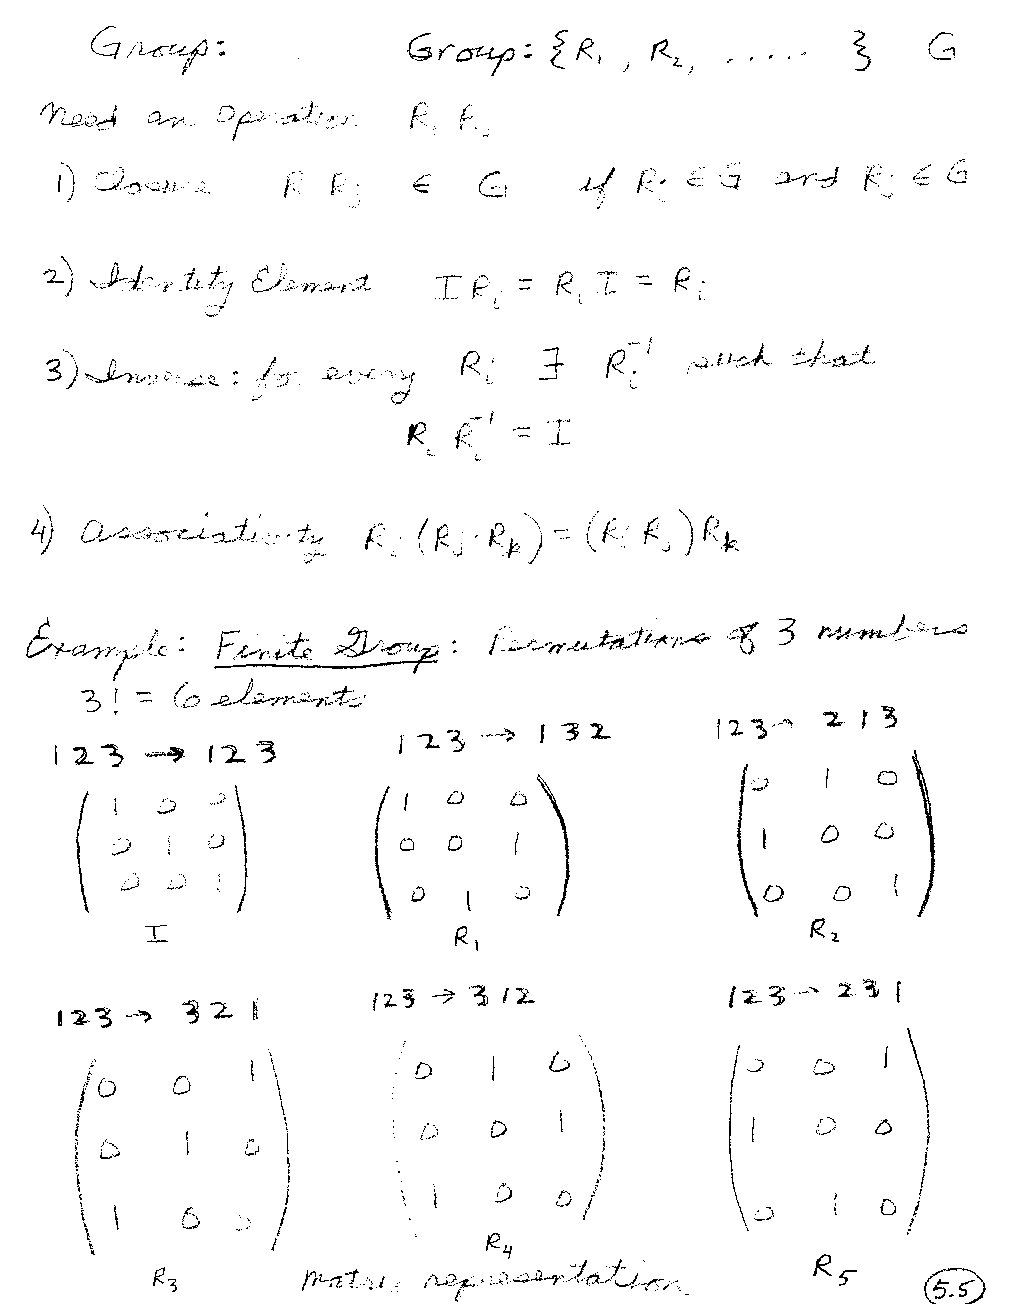 Group: Group: {R₁, R₂, ..... } G
Need an operation R₁ R₂
1) Closure R Rj ∈ G if Ri ∈ G and Rj ∈ G
2) Identity Element I Ri = Ri I = Ri
3) Inverse: for every Ri ∃ Ri⁻¹ such that
Ri Ri⁻¹ = I
4) Associativity Ri (Rj Rk) = (Ri Rj) Rk
Example: Finite Group: Permutations of 3 numbers
3! = 6 elements
123 → 123 123 → 132 123 → 213
1 0 0 1 0 0 0 1 0
0 1 0 0 0 1 1 0 0
0 0 1 0 1 0 0 0 1
I R₁ R₂
123 → 321 123 → 312 123 → 231
0 0 1 0 1 0 0 0 1
0 1 0 0 0 1 1 0 0
1 0 0 1 0 0 0 1 0
R₃ R₄ R₅
Matrix representation
5.5